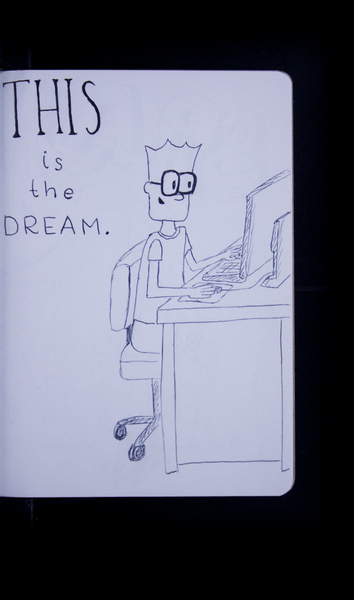 THIS
is
the
DREAM.